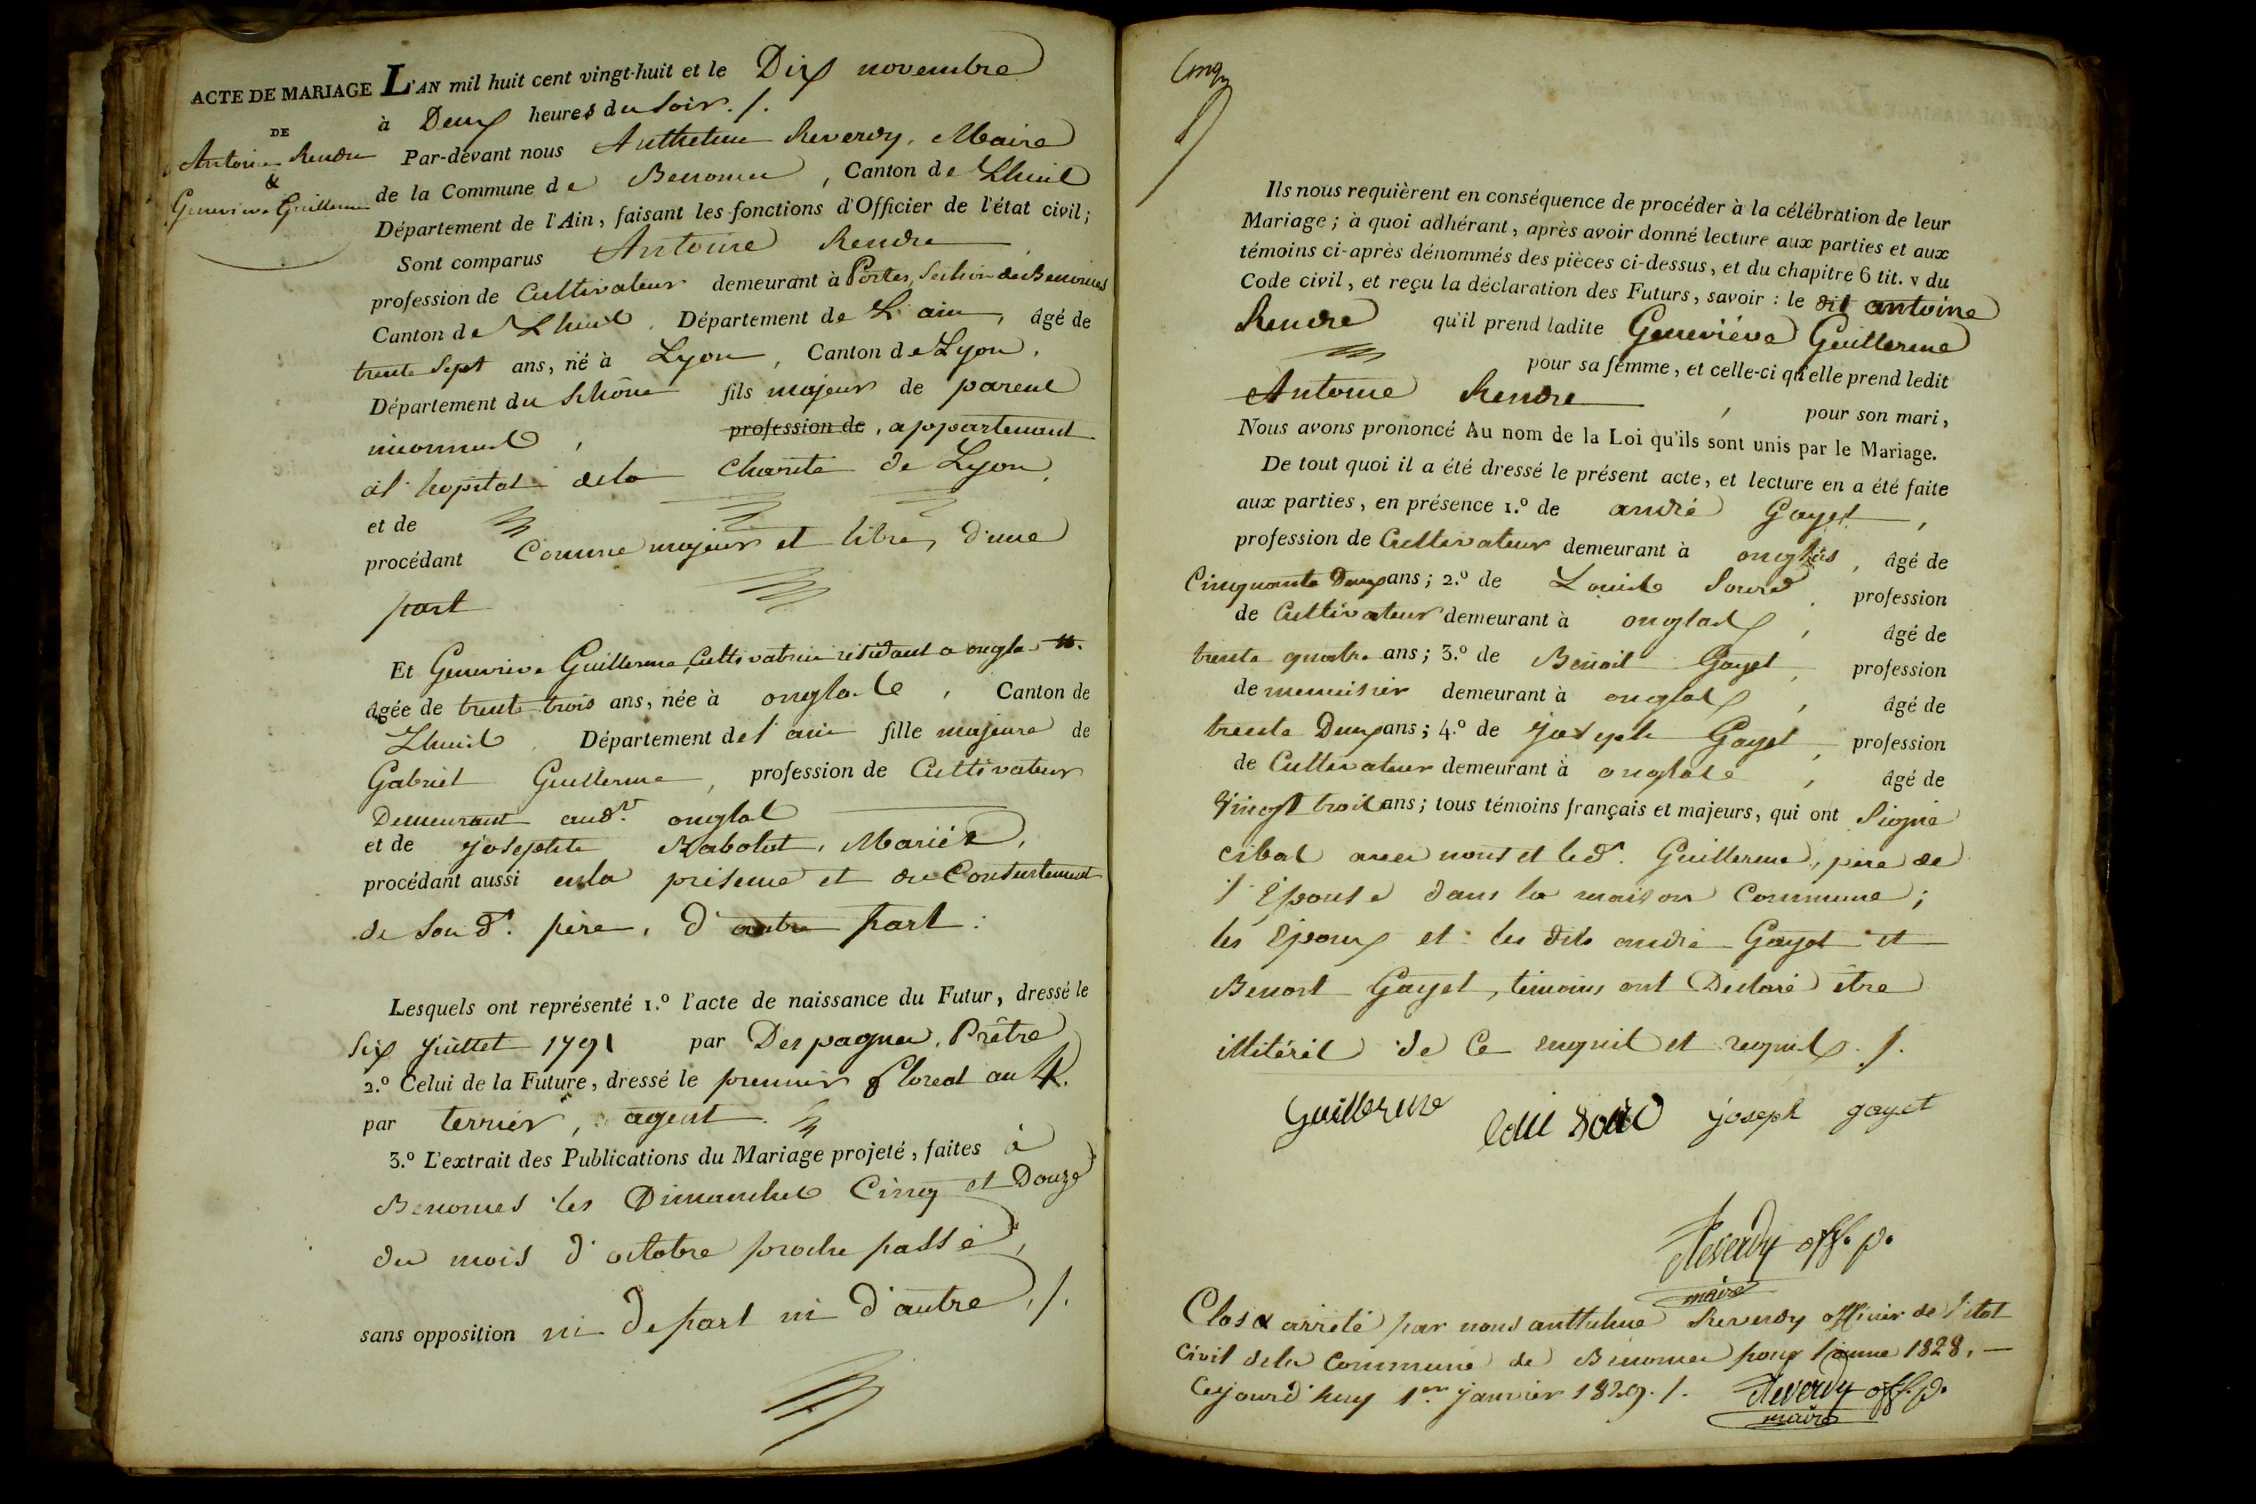 ACTE DE MARIAGE
DE
Antoine Rendre
&
Genevieve Guillerme
L'AN mil huit cent vingt-huit et le Dix novembre
à Deux heures du Soir ./.
Par-devant nous Anthelme Reverdy, Maire
de la Commune de Benonces, Canton de Lhuis
Département de l'Ain, faisant les fonctions d'Officier de l'état civil;
Sont comparus Antoine Rendre
profession de Cultivateur demeurant à Portes, Section de Benonces
Canton de Lhuis, Département de L'ain, âgé de
trente Sept ans, né à Lyon, Canton de Lyon,
Département du Rhône fils majeur de parens
inconnus, profession de, appartenant
à l'hopital de la Charité de Lyon,
et de
procédant Comme majeur et libre, d'une
part
Et Genevieve Guillerme Cultivatrice résidant a onglas
âgée de trente trois ans, née à onglas, Canton de
Lhuis, Département de l'ain fille majeure de
Gabriel Guillerme, profession de Cultivateur
Demeurant aud.t onglas
et de Josephte Rabolet, Mariés,
procédant aussi en la présence et du Consentement
de Son d.t père, d'autre part :
Lesquels ont représenté 1.º l'acte de naissance du Futur, dressé le
Six Juillet 1791 par Despagner, Prêtre
2.º Celui de la Future, dressé le premier floreal an 4.
par terrier, agent.
3.º L'extrait des Publications du Mariage projeté, faites à
Benonces les Dimanches Cinq et Douze
du mois d'octobre proche passé,
sans opposition ni de part ni d'autre ./.
Cinq
Ils nous requièrent en conséquence de procéder à la célébration de leur
Mariage; à quoi adhérant, après avoir donné lecture aux parties et aux
témoins ci-après dénommés des pièces ci-dessus, et du chapitre 6 tit. v du
Code civil, et reçu la déclaration des Futurs, savoir : le dit antoine
Rendre qu'il prend ladite Geneviéve Guillerme
pour sa femme, et celle-ci qu'elle prend ledit
Antoine Rendre, pour son mari,
Nous avons prononcé Au nom de la Loi qu'ils sont unis par le Mariage.
De tout quoi il a été dressé le présent acte, et lecture en a été faite
aux parties, en présence 1.º de andré Gayet,
profession de Cultivateur demeurant à onglas, âgé de
Cinquante Deux ans; 2.º de Louis Soud, profession
de Cultivateur demeurant à onglas, âgé de
trente quatre ans; 3.º de Benoit Gayet, profession
de menuisier demeurant à onglas, âgé de
trente Deux ans; 4.º de Joseph Gayet, profession
de Cultivateur demeurant à onglas, âgé de
Vingt trois ans; tous témoins français et majeurs, qui ont Signé
cibas avec nous et led.t Guillerme, père de
l'Epouse dans la maison Commune;
les Epoux et les dits andré Gayet et
Benoit Gayet, témoins ont Déclaré être
illitérés de Ce enquis et requis ./.
Guillerme joseph gayet
Reverdy off. p.
maire
Clos & arrêté par nous anthelme Reverdy officier de l'etat
Civil de la Commune de Benonces pour l'anne 1828, —
Cejourd'huy 1er janvier 1829 ./. Reverdy off. p.
maire